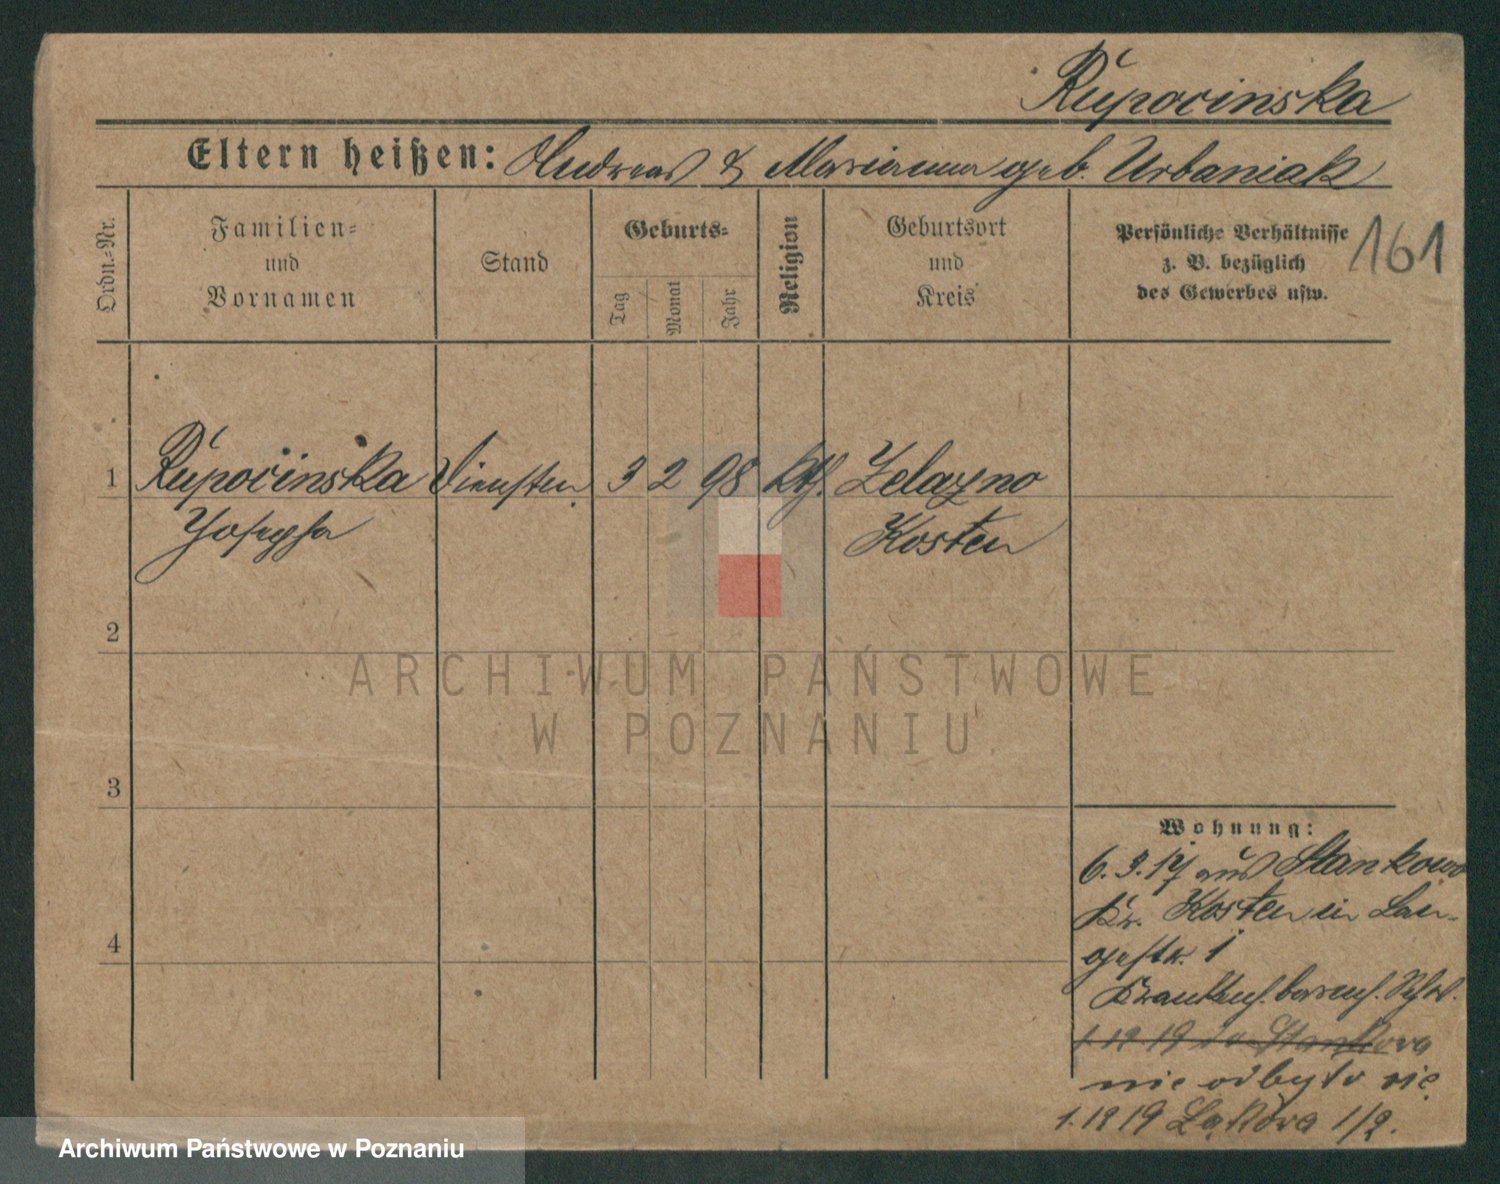 Rupocinska
Eltern heißen: Andreas & Marianna geb. Urbaniak
Ordn.-Nr.
Familien-
und
Vornamen
Stand
Geburts-
Tag
Monat
Jahr
Religion
Geburtsort
und
Kreis
Persönliche Verhältnisse
z. B. bezüglich
des Gewerbes usw.
161
1 Rupocinska Dienstm. 3 2 98 kth. Zelazno
Josepha Kosten
2
3
4
Wohnung:
6.3.17 aus Stankowo
Kr. Kosten in Lan-
gestr. 1
Krankenh. barmh. Schw.
nie odbyto się
1.12 19 Łąkowa 1/2.
ARCHIWUM PAŃSTWOWE
W POZNANIU
Archiwum Państwowe w Poznaniu